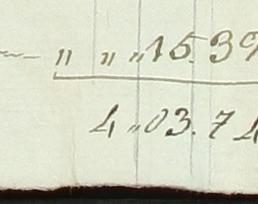 " " " 15. 39
4 " 03. 74